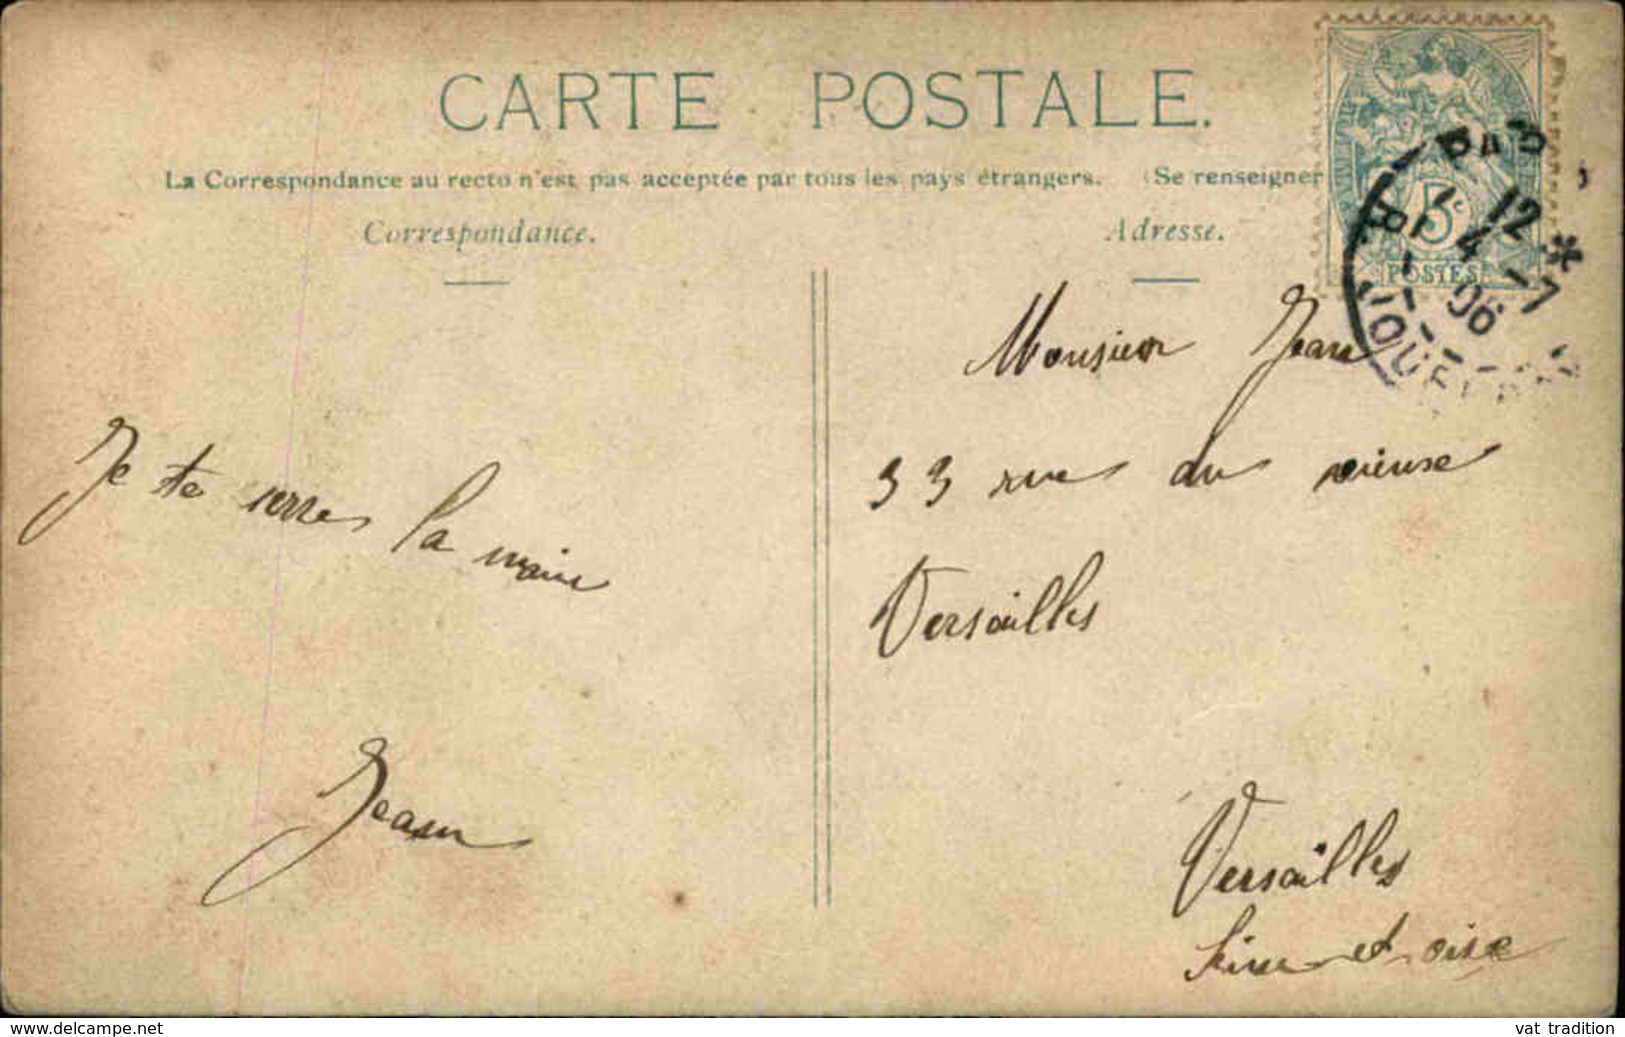 CARTE POSTALE.
La Correspondance au recto n'est pas acceptée par tous les pays étrangers. (Se renseigner
Correspondance.
Adresse.
5c
POSTES
12
4 -7
06
Monsieur Jean
33 rue du
Versailles
Je te serre la main
Jean
Versailles
Seine et oise
www.delcampe.net
vat tradition